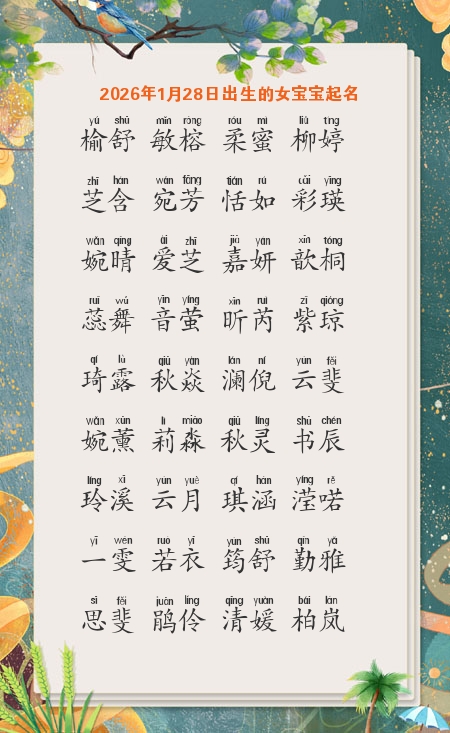 2026年1月28日出生的女宝宝起名
yú shū mǐn róng róu mì liǔ tíng
榆舒 敏榕 柔蜜 柳婷
zhī hán wǎn fāng tián rú cǎi yīng
芝含 宛芳 恬如 彩瑛
wǎn qíng ài zhī jiā yán xīn tóng
婉晴 爱芝 嘉妍 歆桐
ruǐ wǔ yīn yíng xīn ruì zǐ qióng
蕊舞 音萤 昕芮 紫琼
qí lù qiū yàn lán ní yún fěi
琦露 秋焱 澜倪 云斐
wǎn xūn lì miǎo qiū líng shū chén
婉薰 莉淼 秋灵 书辰
líng xī yún yuè qí hán yíng rě
玲溪 云月 琪涵 滢喏
yī wén ruò yī yún shū qín yǎ
一雯 若衣 筠舒 勤雅
sī fěi juān líng qīng yuàn bǎi lán
思斐 鹃伶 清媛 柏岚